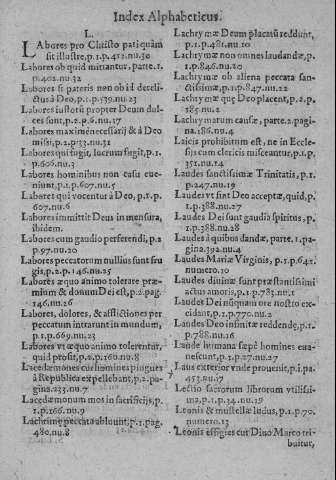 Index Alphabeticus.
L.
LAbores pro Christo pati quàm
sit illustre, p.1.p.412.nu.30
Labores ob quid mittantur, parte.1.
p.402.nu.32
Labores si pateris non ob id dereli-
ctus à Deo, p.1.p.539.nu.23
Labores iustorū propter Deum dul-
ces sunt, p.2.p.6.nu.17
Labores maximè necessarij & à Deo
missi, p.2.p.33.nu.31
Labores qui fugit, lucrum fugit, p.1.
p.606.nu.3
Labores hominibus non casu eue-
niunt, p.1.p.607.nu.5
Labores qui vocentur à Deo, p.1.p.
607.nu.6
Labores immittit Deus in mensura,
ibidem.
Labores cum gaudio perferendi, p.2
p.97.nu.20
Labores peccatorum nullius sunt fru
gis, p.2.p.146.nu.25
Labores æquo animo tolerare præ-
mium & donum Dei est, p.2.pag.
146.nu.26
Labores, dolores, & afflictiones per
peccatum intrarunt in mundum,
p.1.p.669.nu.23
Labores vt æquo animo tolerentur,
quid prosit, p.2.p.160.nu.8
Lacedæmones cur homines pingues
à Republica expellebant, p.2.pa-
gina.333.nu.7
Lacedæmonum mos in sacrificijs, p.
1.p.166.nu.9
Lachrimę peccata abluunt, p.1.pag.
480.nu.8
Lachrymæ Deum placatū reddunt,
p.1.p.481.nu.10
Lachrymæ non omnes laudandæ, p.
1.p.846.nu.20
Lachrymæ ob aliena peccata san-
ctissimæ, p.1.p.847.nu.22
Lachrymæ quę Deo placent, p.2.p.
185.nu.2
Lachrymarum causæ, parte.2.pagi-
na.186.nu.4
Laicis prohibitum est, ne in Eccle-
sijs cum clericis misceantur, p.1.p.
351.nu.14
Laudes sanctissimæ Trinitatis, p.1.
p.247.nu.19
Laudes vt sint Deo acceptæ, quid, p.
1.p.388.nu.27
Laudes Dei sunt gaudiū spiritus, p.
1.p.388.nu.28
Laudes à quibus dandæ, parte.1.pa-
gina.392.nu.4
Laudes Mariæ Virginis, p.1.p.641.
numero.10
Laudes diuinæ sunt præstantissimi
actus amoris, p.1.p.783.nu.1
Laudes Dei nūquam ore nostro ex-
cidant, p.1.p.770.nu.2
Laudes Deo infinitæ reddendę, p.1.
p.788.nu.16
Laude humana sæpè homines eua-
nescunt, p.1.p.27.nu.27
Laus exterior vnde prouenit, p.1.pa.
453.nu.17
Lectio sactorum librorum vtilissi-
ma, p.1.p.34.nu.19
Leonis & mustellæ ludus, p.1.p.70.
numero.13
Leonis effigies cur Diuo Marco tri-
buitur,